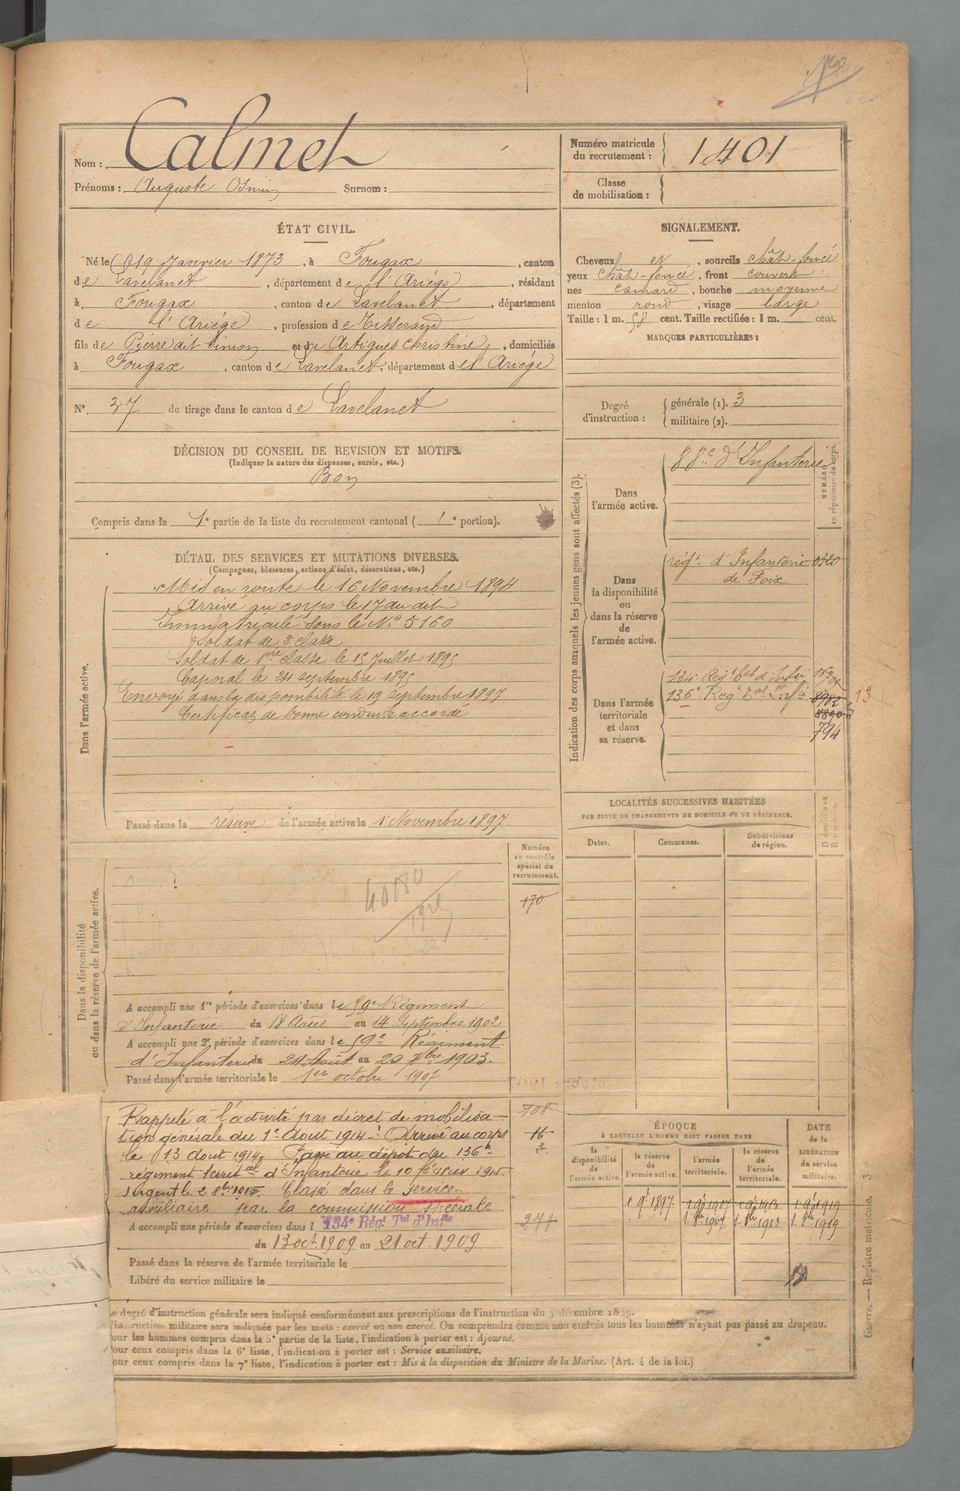 Nom : Calmet
Prénoms : Auguste Surnom :
Numéro matricule du recrutement : 1401
Classe de mobilisation :
ÉTAT CIVIL.
Né le 19 Janvier 1873, à Fougax, canton
de Lavelanet, département de l'Ariége, résidant
à Fougax, canton de Lavelanet, département
de l'Ariége, profession de Tisserand
fils de Pierre dit Simon et de Artigues Christine, domiciliés
à Fougax, canton de Lavelanet, département de l'Ariége
N°. 37 de tirage dans le canton de Lavelanet
DÉCISION DU CONSEIL DE REVISION ET MOTIFS.
(Indiquer la nature des dispenses, sursis, etc.)
Bon
Compris dans la 1e partie de la liste du recrutement cantonal ( 1e portion).
SIGNALEMENT.
Cheveux et, sourcils chât-foncé
yeux chât-foncé, front couvert
nez camard, bouche moyenne
menton rond, visage large
Taille : 1 m. 58 cent. Taille rectifiée : 1 m. cent.
MARQUES PARTICULIÈRES :
Degré d'instruction : générale (1). 3
militaire (2).
DÉTAIL DES SERVICES ET MUTATIONS DIVERSES.
(Campagnes, blessures, actions d'éclat, décorations, etc.)
Dans l'armée active.
Mis en route le 16 Novembre 1894
Arrivé au corps le 17 du dit
Immatriculé sous le No 5160
Soldat de 2e classe
Soldat de 1ère classe le 15 Juillet 1895
Caporal le 24 septembre 1895
Envoyé dans la disponibilité le 19 Septembre 1897
Certificat de bonne conduite accordé
Passé dans la réserve de l'armée active le 1 Novembre 1897
Indication des corps auxquels les jeunes gens sont affectés (3).
NUMÉRO au répertoire du corps.
Dans l'armée active.
88e d'Infanterie
Dans la disponibilité ou dans la réserve de l'armée active.
régt d'Infanterie 0320
de Foix
Dans l'armée territoriale et dans sa réserve.
134e Régt tal d'Infie
136e Régt tal d'Infie
13
794
LOCALITÉS SUCCESSIVES HABITÉES
PAR SUITE DE CHANGEMENTS DE DOMICILE OU DE RÉSIDENCE.
Dates. Communes. Subdivisions de région.
Numéro au contrôle spécial du recrutement.
170
Dans la disponibilité ou dans la réserve de l'armée active.
40080
A accompli une 1re période d'exercices dans le 59e Régiment
d'Infanterie du 18 Août au 14 Septembre 1902
A accompli une 2e période d'exercices dans le 59e Régiment
d'Infanterie du 24 Août au 20 7bre 1903.
Passé dans l'armée territoriale le 1er octobre 1907
Rappelé à l'activité par décret de mobilisa-
tion générale du 1e Août 1914. Arrivé au corps
le 13 Aout 1914. Passé au dépot du 136e
régiment territal d'Infanterie le 10 février 1915
Sergent le 2 8bre 1915. Classé dans le service
auxiliaire par la commission spéciale
A accompli une période d'exercices dans l 134e Régt Tal d'Infie
du 13 oct. 1909 au 21 oct. 1909.
Passé dans la réserve de l'armée territoriale le
Libéré du service militaire le
908
16
271
ÉPOQUE
à laquelle l'homme doit passer dans
la disponibilité de l'armée active. la réserve de l'armée active. l'armée territoriale. la réserve de l'armée territoriale.
DATE de la LIBÉRATION du service militaire.
1 9e 1897 1 9e 1907 1 9e 1913 1 9e 1919
1 8bre 1907 1 8bre 1913 1 8bre 1919
Le degré d'instruction générale sera indiqué conformément aux prescriptions de l'instruction du 4 décembre 1889.
L'instruction militaire sera indiquée par les mots : exercé ou non exercé. On comprendra comme non exercés tous les hommes n'ayant pas passé au drapeau.
our les hommes compris dans la 5e partie de la liste, l'indication à porter est : Ajourné.
our ceux compris dans la 6e liste, l'indication à porter est : Service auxiliaire.
our ceux compris dans la 7e liste, l'indication à porter est : Mis à la disposition du Ministre de la Marine. (Art. 4 de la loi.)
Guerre. — Registre matricule. 3